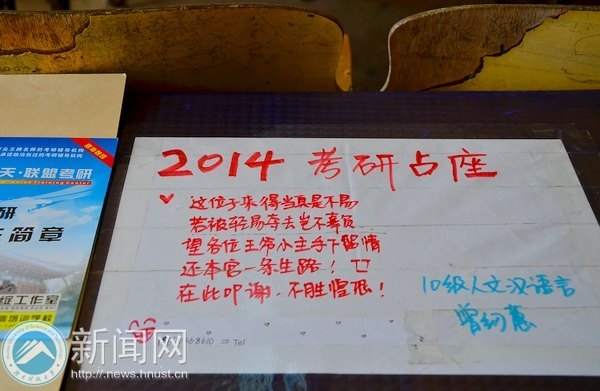 2014 考研占座
这位子来得当真是不易
若被轻易夺去岂不辜负
望各位王爷小主手下留情
还本宫一条生路!
在此叩谢,不胜惶恐!
10级人文汉语言
8610 ⇒ Tel
天·联盟考研
Union Training Center
研
简章
工作室
培训学校
新闻网
http://news.hnust.cn